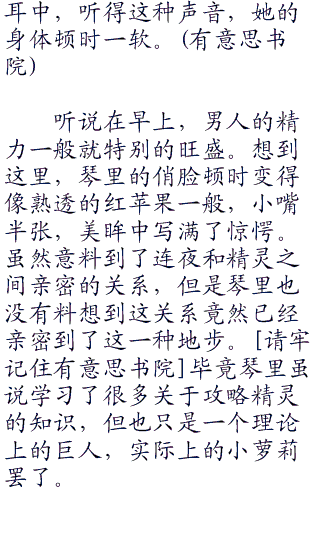 耳中，听得这种声音，她的
身体顿时一软。(有意思书
院)
听说在早上，男人的精
力一般就特别的旺盛。想到
这里，琴里的俏脸顿时变得
像熟透的红苹果一般，小嘴
半张，美眸中写满了惊愕。
虽然意料到了连夜和精灵之
间亲密的关系，但是琴里也
没有料想到这关系竟然已经
亲密到了这一种地步。[请牢
记住有意思书院]毕竟琴里虽
说学习了很多关于攻略精灵
的知识，但也只是一个理论
上的巨人，实际上的小萝莉
罢了。